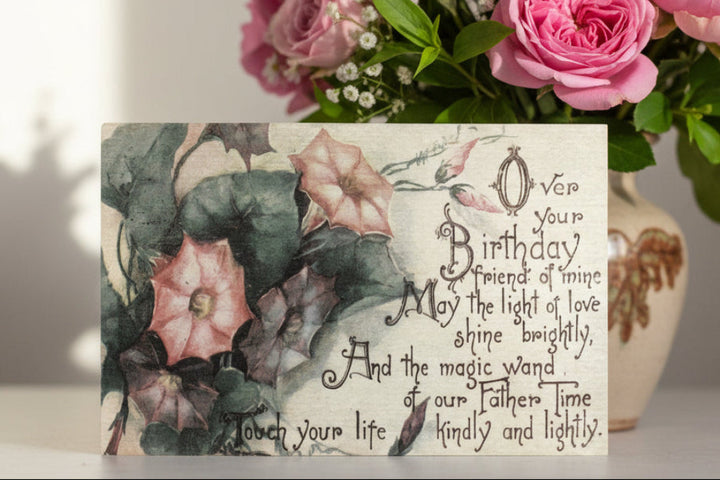 Over
your
Birthday
friend of mine
May the light of love
shine brightly,
And the magic wand
of our Father Time
Touch your life kindly and lightly.